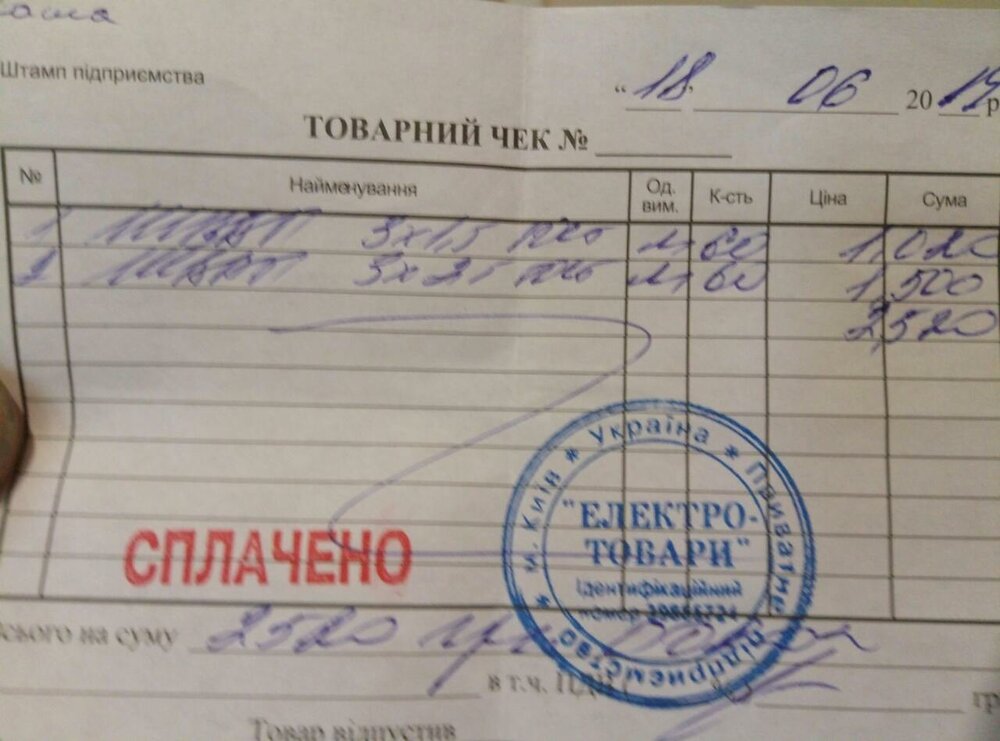 Штамп підприємства
"18" 06 2019 р
ТОВАРНИЙ ЧЕК №
№ Найменування Од. вим. К-сть Ціна Сума
1 ШВВП 3х1,5 м 60 1,020
2 ШВВП 3х2,5 м 60 1,500
2,520
* Україна * Приватне підприємство * м. Київ
"ЕЛЕКТРО-
ТОВАРИ"
Ідентифікаційний
номер
СПЛАЧЕНО
сього на суму 2520 грн
в т.ч. ПДВ
Товар відпустив